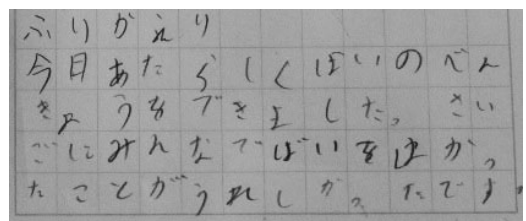 ふりがえり
今日あたらしくばいのべん
きょうをできました。さい
ごにみんなでばいを
たことがうれしかったです。